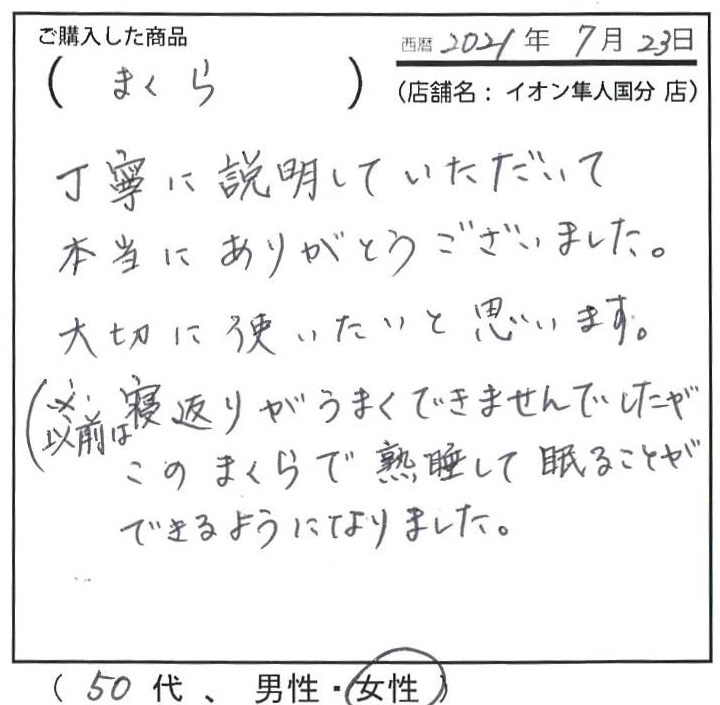 ご購入した商品
西暦 2021 年 7 月 23 日
( まくら )
(店舗名: イオン隼人国分 店)
丁寧に説明していただいて
本当にありがとうございました。
大切に使いたいと思います。
(以前は寝返りがうまくできませんでしたが
このまくらで熟睡して眠ることが
できるようになりました。
( 50 代 、 男性・女性 )